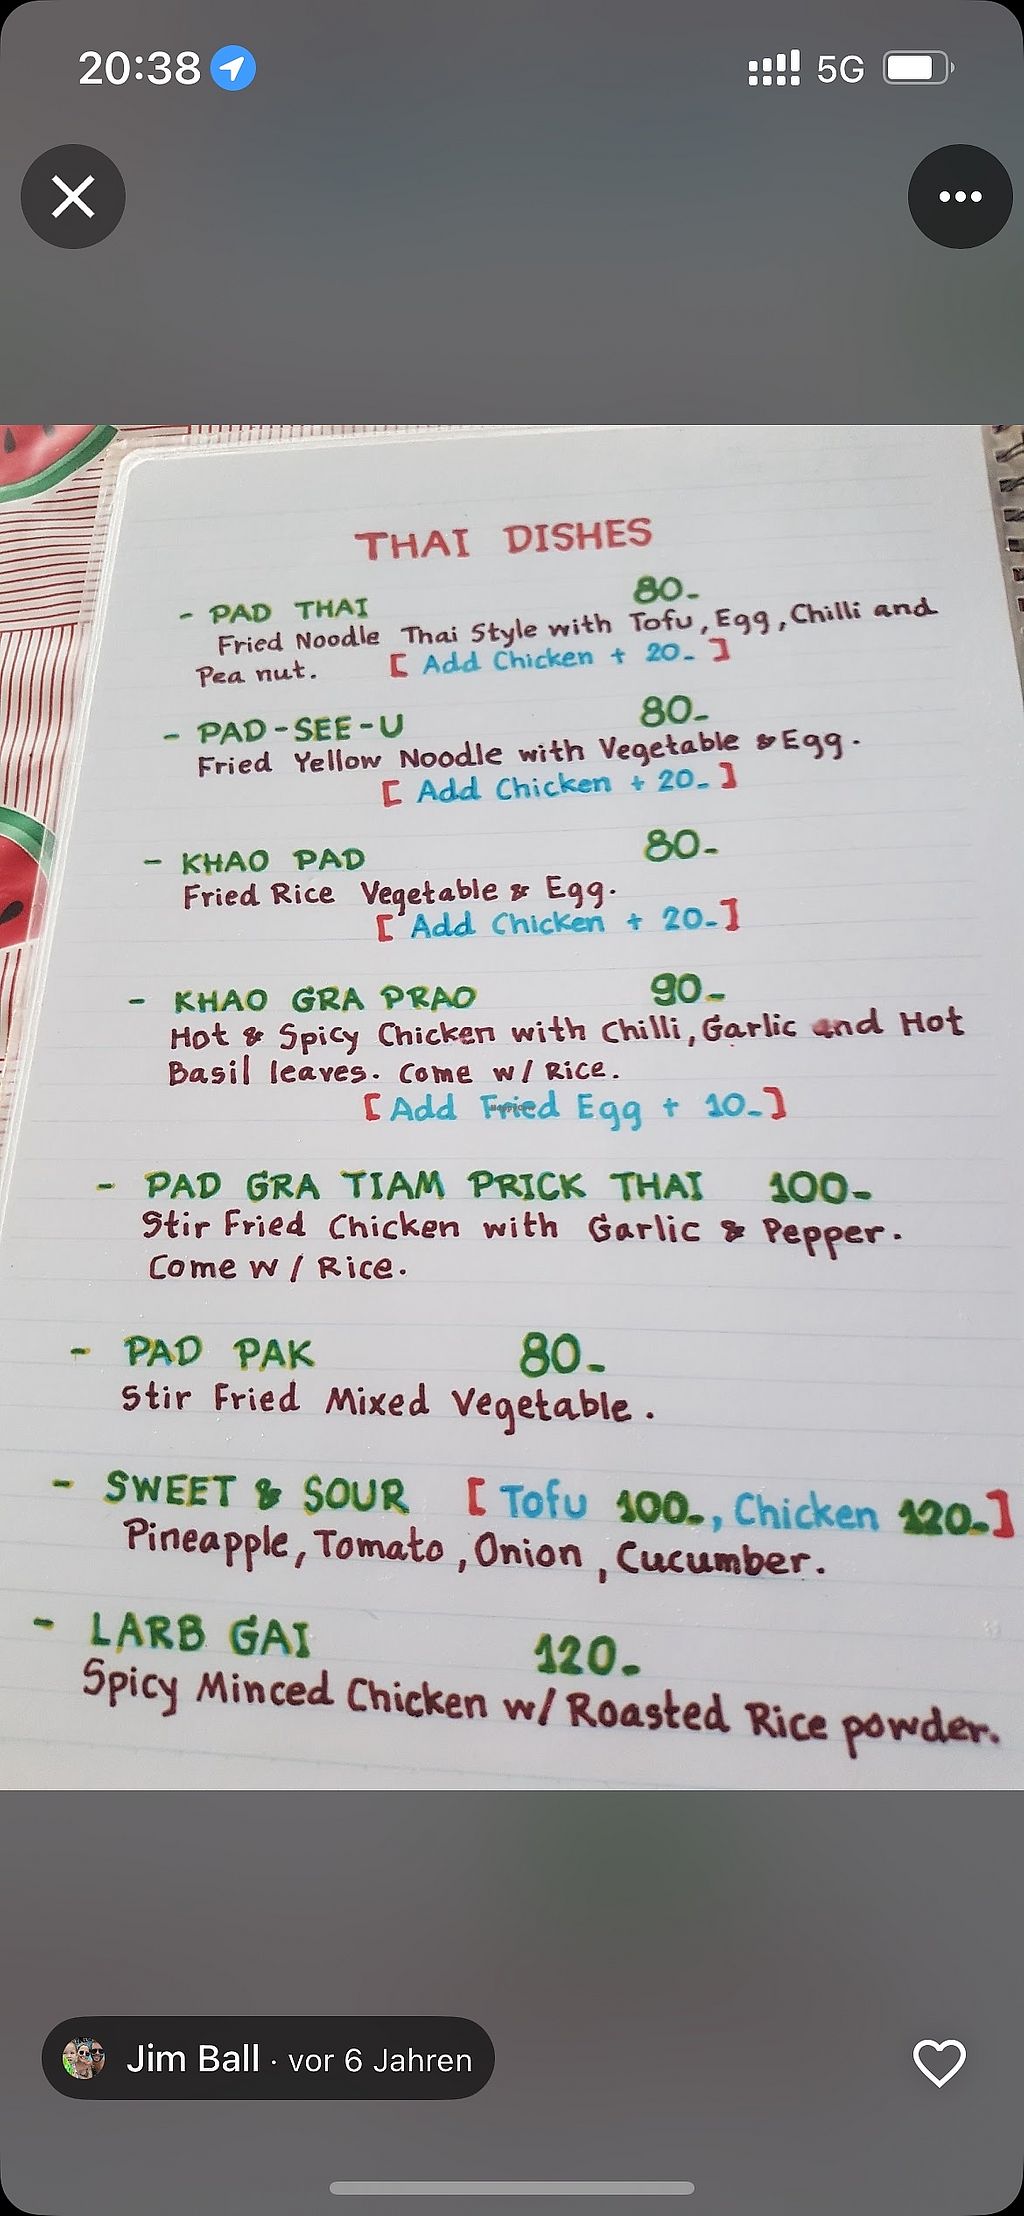 20:38 5G
THAI DISHES
- PAD THAI 80-
Fried Noodle Thai Style with Tofu, Egg, Chilli and
Pea nut. [ Add Chicken + 20- ]
- PAD-SEE-U 80-
Fried Yellow Noodle with Vegetable & Egg.
[ Add Chicken + 20- ]
- KHAO PAD 80-
Fried Rice Vegetable & Egg.
[ Add Chicken + 20- ]
- KHAO GRA PRAO 90-
Hot & Spicy Chicken with Chilli, Garlic and Hot
Basil leaves. Come w/ Rice.
[ Add Fried Egg + 10- ]
HappyCow
- PAD GRA TIAM PRICK THAI 100-
Stir Fried Chicken with Garlic & Pepper.
Come w/ Rice.
- PAD PAK 80-
Stir Fried Mixed Vegetable.
- SWEET & SOUR [ Tofu 100-, Chicken 120- ]
Pineapple, Tomato, Onion, Cucumber.
- LARB GAI 120-
Spicy Minced Chicken w/ Roasted Rice powder.
Jim Ball · vor 6 Jahren